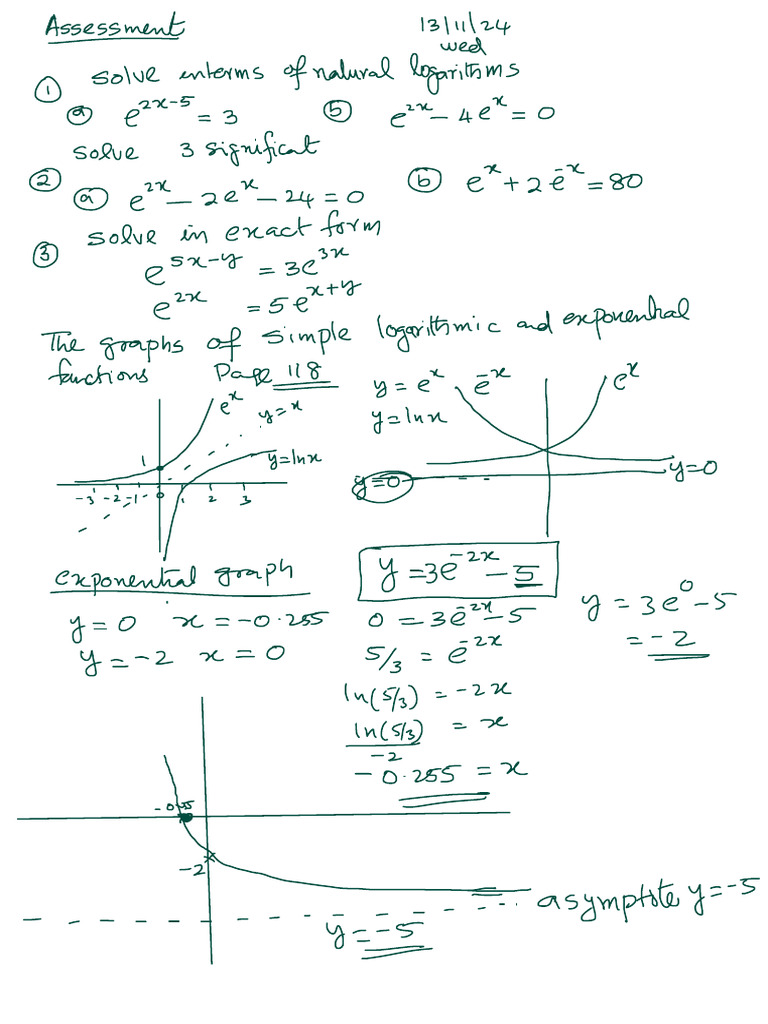 Assessment 13/11/24
wed
① solve interms of natural logarithms
ⓐ e^{2x-5} = 3 ⑤ e^{2x} - 4e^x = 0
solve 3 significat
② ⓐ e^{2x} - 2e^x - 24 = 0 ⓑ e^x + 2e^{-x} = 80
③ solve in exact form
e^{5x-y} = 3e^{3x}
e^{2x} = 5e^{x+y}
The graphs of simple logarithmic and exponential
functions Page 118
y = e^x e^{-x} e^x
y = ln x
e^x y=x
y=lnx
1
-3 -2 -1 0 1 2 3
y=0 y=0
exponential graph
y = 3e^{-2x} - 5
y = 0 x = -0.255
y = -2 x = 0
0 = 3e^{-2x} - 5
5/3 = e^{-2x}
ln(5/3) = -2x
ln(5/3)/-2 = x
-0.255 = x
y = 3e^0 - 5
= -2
-2
asymptote y = -5
y = -5